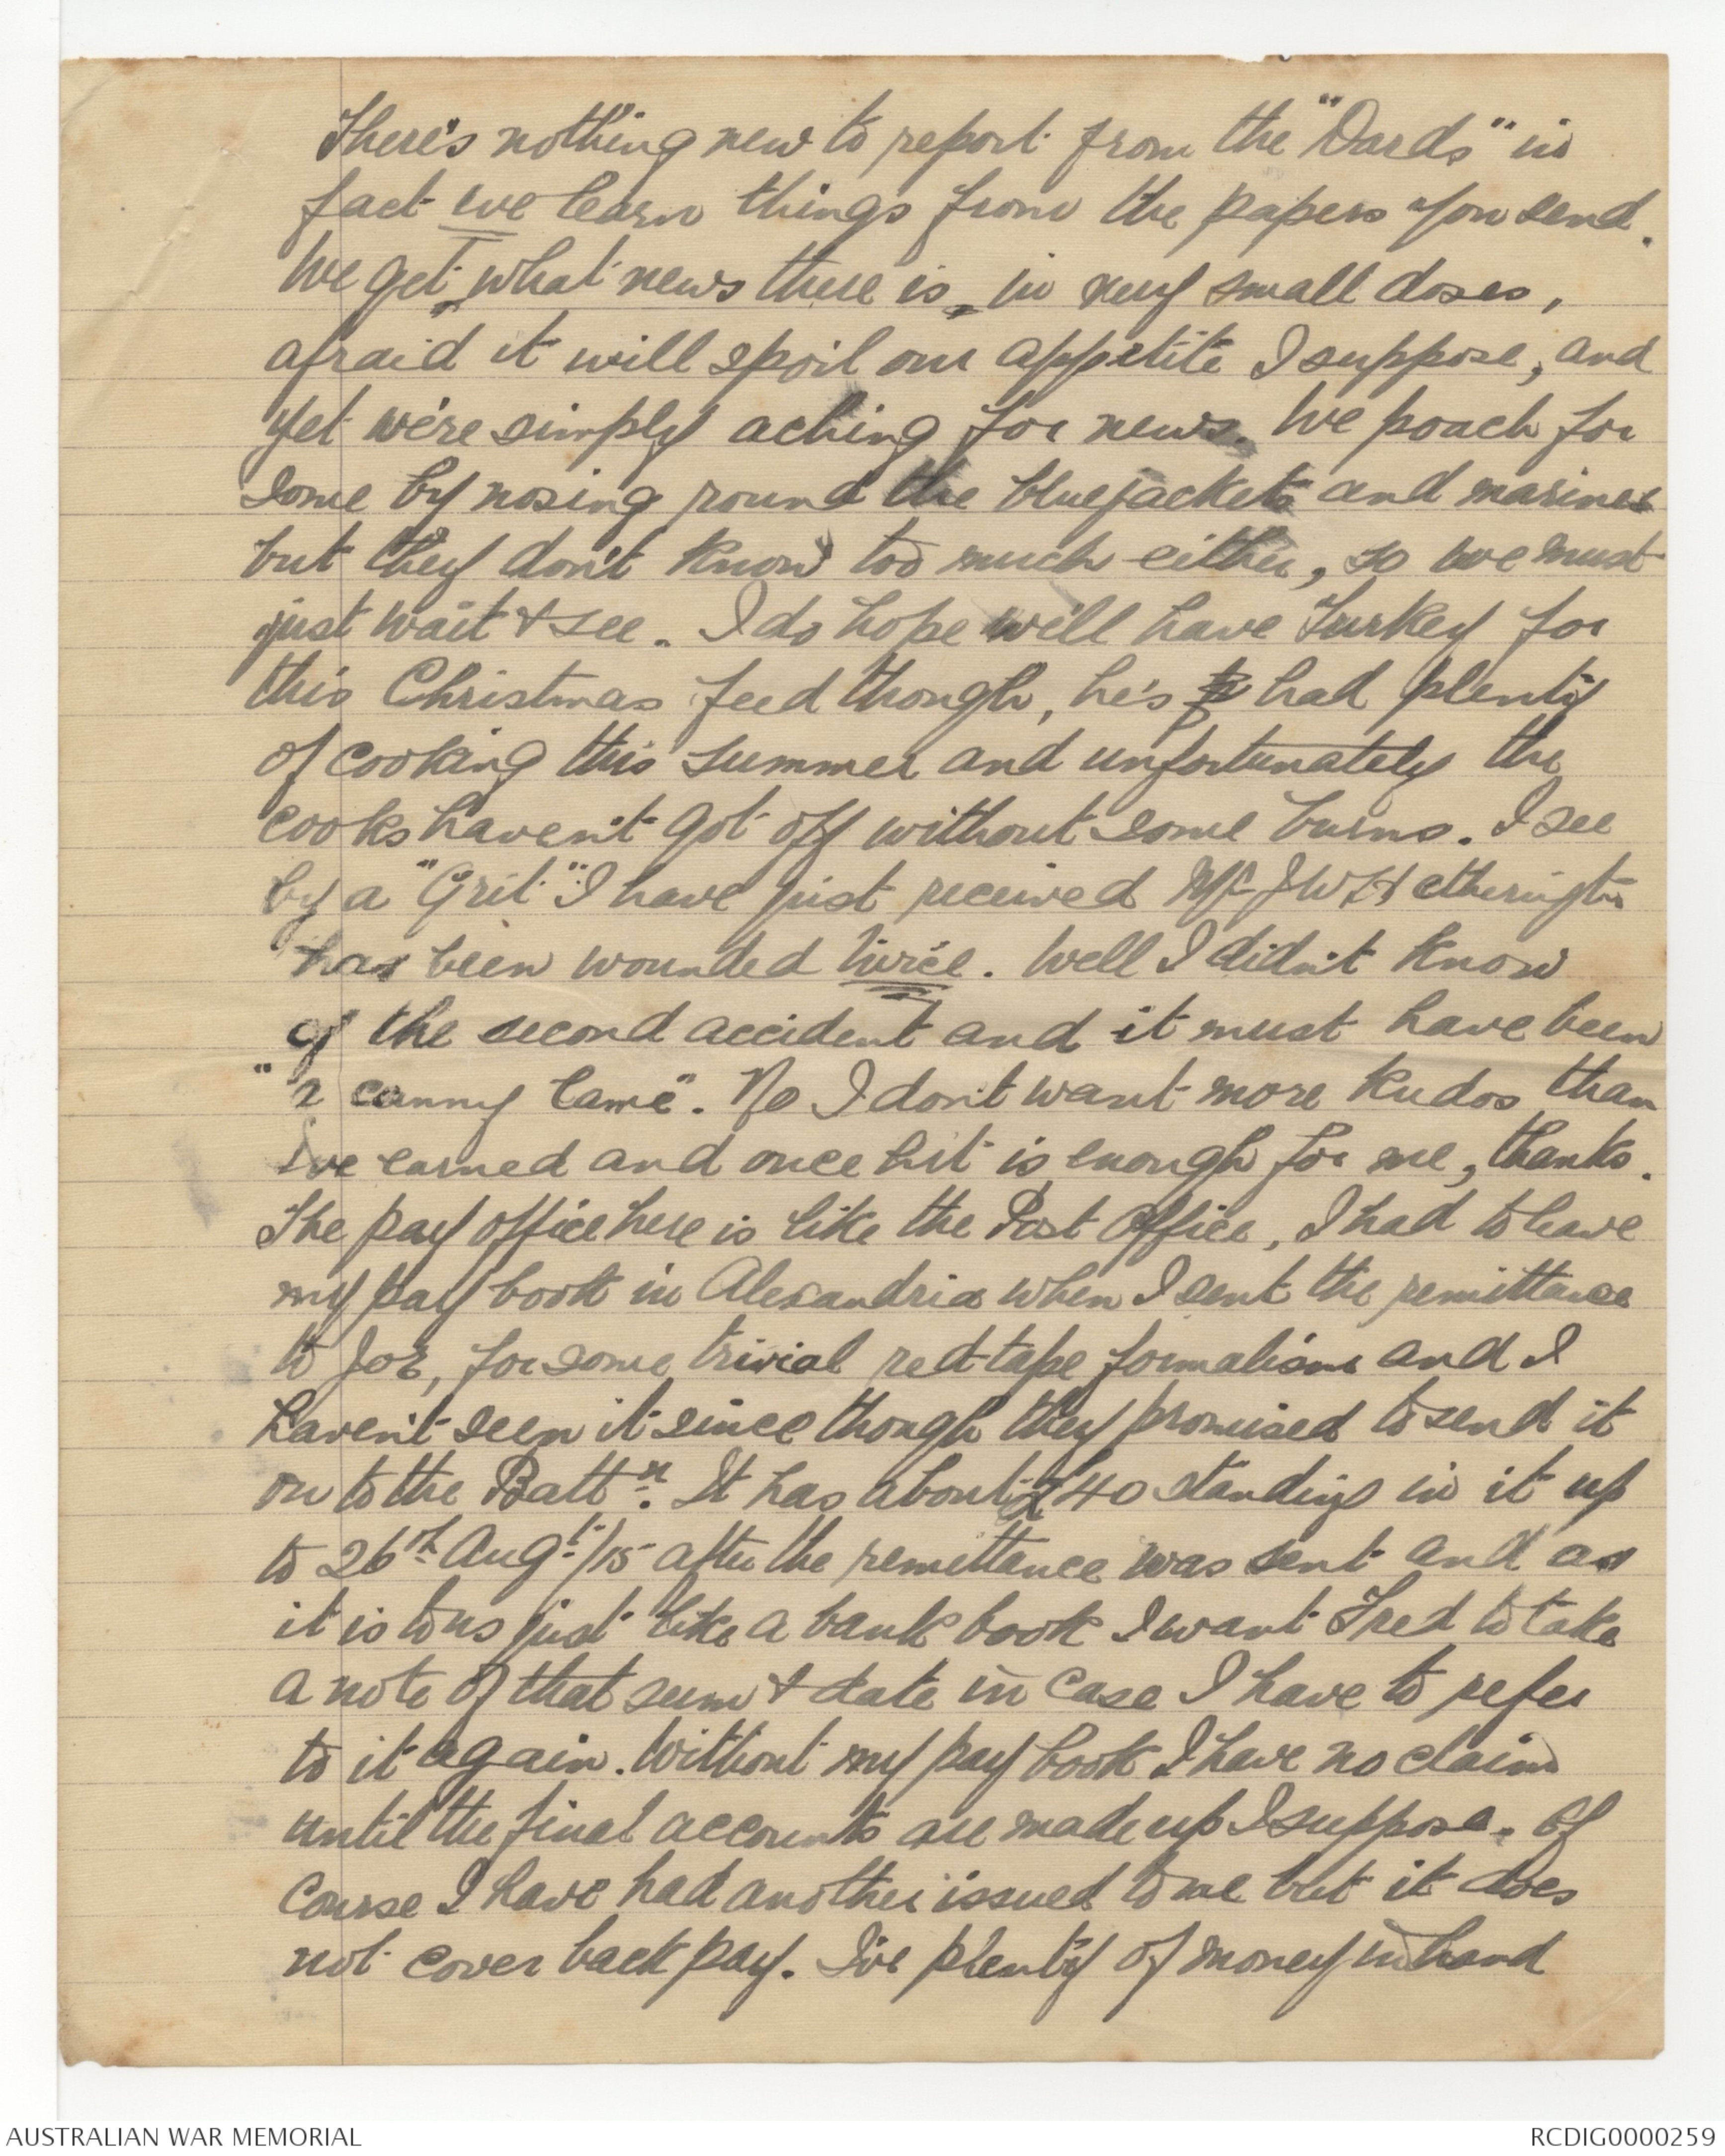 There's nothing new to report from the "Dards" in
fact we learn things from the papers you send.
We get, what news there is, in very small doses,
afraid it will spoil our appetite I suppose, and
yet we're simply aching for news. We poach for
some by nosing round the bluejackets and marines
but they don't know too much either, so we must
just wait & see. I do hope we'll have Turkey for
this Christmas feed though, he's had plenty
of cooking this summer and unfortunately the
cooks haven't got off without some burns. I see
by a "Grit" I have just received Mr J W Hetherington
has been wounded twice. Well I didn't know
of the second accident and it must have been
"a canny lame". No I don't want more kudos than
I've earned and once hit is enough for me, thanks.
The pay office here is like the Post Office, I had to leave
my pay book in Alexandria when I sent the remittance
to Joe, for some trivial red-tape formalism and I
haven't seen it since though they promised to send it
on to the Battn. It has about £40 standing in it up
to 26th Augt/15 after the remittance was sent and as
it is to us just like a bank book I want Fred to take
a note of that sum & date in case I have to refer
to it again. Without my pay book I have no claim
until the final accounts are made up I suppose. Of
course I have had another issued to me but it does
not cover back pay. I've plenty of money in hand
AUSTRALIAN WAR MEMORIAL
RCDIG0000259